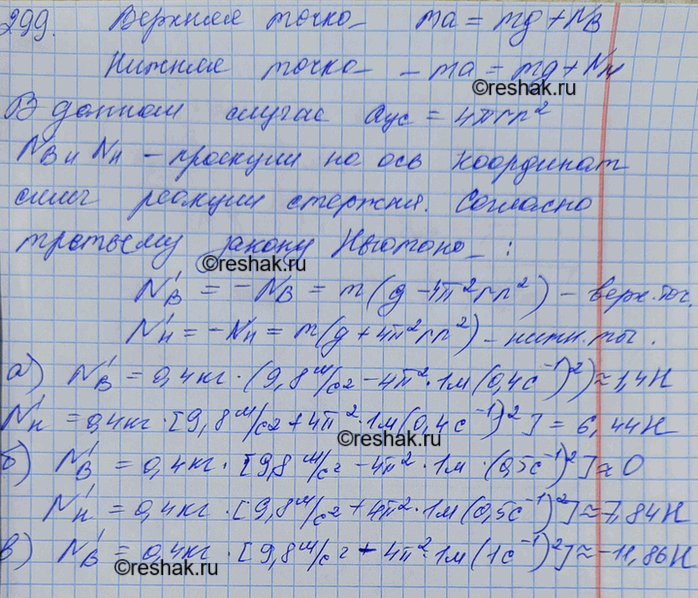 299. Верхняя точка ma = mg + Nв
Нижняя точка - ma = mg + Nн
©reshak.ru
В данном случае aцс = 4πrn²
Nв и Nн – проекции на ось координат
силы реакции стержня. Согласно
третьему закону Ньютона :
©reshak.ru
N'в = -Nв = m(g - 4π²rn²) – верх. точ.
N'н = -Nн = m(g + 4π²rn²) – нижн. точ.
а) N'в = 0,4кг · (9,8м/с2 - 4π² · 1м (0,4с⁻¹)²) ≈ 1,4Н
N'н = 0,4кг · [9,8м/с2 + 4π² · 1м (0,4с⁻¹)²] = 6,44Н
©reshak.ru
б) N'в = 0,4кг · [9,8м/с2 - 4π² · 1м · (0,5с⁻¹)²] ≈ 0
N'н = 0,4кг · [9,8м/с2 + 4π² · 1м (0,5с⁻¹)²] ≈ 7,84Н
в) N'в = 0,4кг · [9,8м/с2 - 4π² · 1м (1с⁻¹)²] ≈ -11,86Н
©reshak.ru